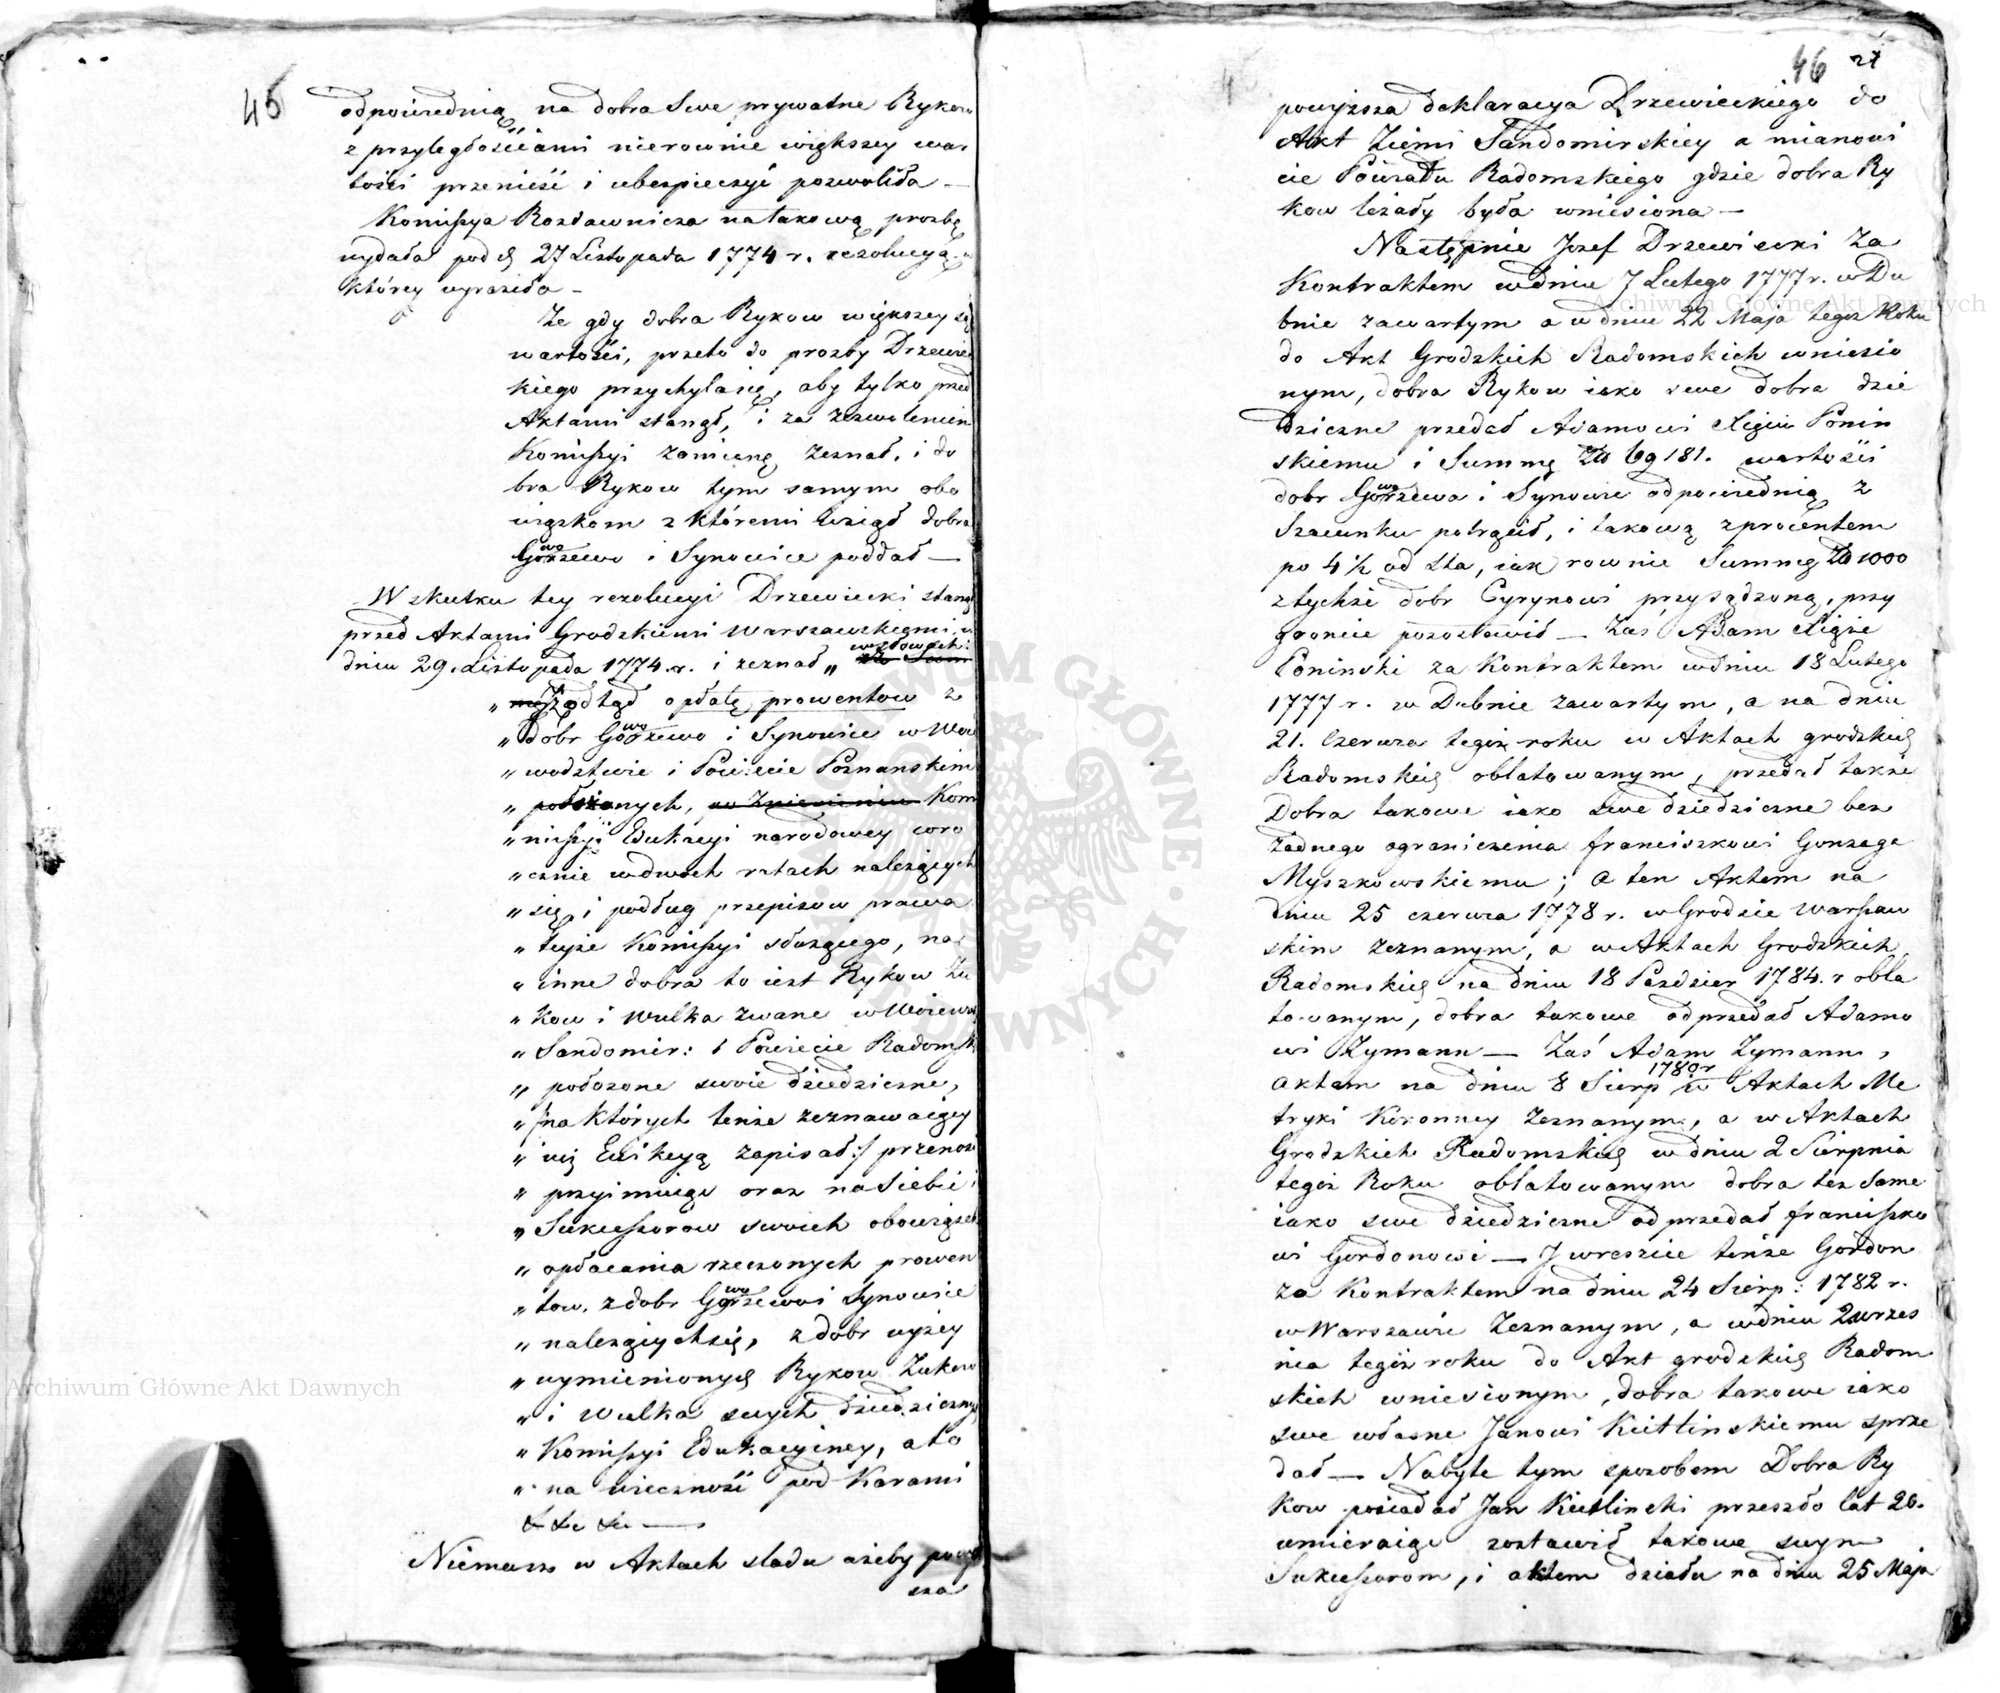 45
odpowiednią na dobra Swe prywatne Rykow
z przyległościami nierownie większey war
tości przenieść i ubespieczyć pozwoliła —
Komissya Rozdawnicza na takową prozbę
wydała pod d 27 Listopada 1774 r. rezolucyą
którey wyraziła —
Ze gdy dobra Rykow większey są
wartości, przeto do prozby Drzewiec
kiego przychyla się, aby tylko przed
Aktami stanął, i za zezwoleniem
Komissyi zamianę zeznał, i do
bra Rykow tym samym obo
wiązkom z któremi wziął dobra
Gorzewo i Synowice poddał —
W skutku tey rezolucyi Drzewiecki stanął
przed Aktami Grodzkiemi Warszawskiemi w
dniu 29. Listopada 1774. r. i zeznał „ w słowach:
„ odtąd opłatę prowentow z
„ dobr Gorzewo i Synowice w Woie
„ wodztwie i Powiecie Poznanskim
„ położonych, po zniesieniu Kom
„ missyi Edukacyi narodowey coro
„ cznie w dwoch ratach należących
„ się, i podług przepisow prawa
„ teyże Komissyi służącego, na
„ inne dobra to iest Rykow Zu
„ kow i Wulka zwane w Woiewo
„ Sandomir: i Powiecie Radomsk
„ położone swoie dziedziczne,
„ /na których tenże zeznawaiący
„ iuż Ewikcyą zapisał:/ przenosi
„ przyimuiąc oraz na Siebie i
„ Sukcessorow swoich obowiązek
„ opłacania rzeczonych prowen
„ tow, z dobr Gorzewo i Synowice
„ należących się, z dobr wyzey
„ wymienionych Rykow Zukow
„ i Wulka swych dziedzicznych
„ Komissyi Edukacyiney, a to
„ na wieczność pod Karami
& &c &c —
Niemasz w Aktach sladu ażeby powyż
sza
46 24
powyższa deklaracya Drzewieckiego do
Akt Ziemi Sandomirskiey a mianowi
cie Powiatu Radomskiego gdzie dobra Ry
kow leżały była wniesiona —
Następnie Jozef Drzewiecki za
Kontraktem w dniu 7 Lutego 1777 r. w Du
bnie zawartym a w dniu 22 Maja tegoż Roku
do Akt Grodzkich Radomskich wniesio
nym, dobra Rykow iako swe dobra dzie
dziczne przedał Adamowi Xięciu Ponin
skiemu i Summę Zło 69181. wartości
dobr Gorzewa i Synowic odpowiednią z
Szacunku potrącił, i takową z procentem
po 4 ½ od sta, iak rownie Summę Zło 1000
z tychże dobr Cyrynowi przysądzoną, przy
gruncie pozostawił — Zaś Adam Xiąże
Poninski za Kontraktem w dniu 18 Lutego
1777 r. w Dubnie zawartym, a na dniu
21. Czerwca tegoż roku w Aktach grodzkich
Radomskich oblatowanym, przedał także
Dobra takowe iako swe dziedziczne bez
żadnego ograniczenia franciszkowi Gonzaga
Myszkowskiemu; a ten Aktem na
dniu 25 czerwca 1778 r. w Grodzie Warszaw
skim zeznanym, a w Aktach Grodzkich
Radomskich na dniu 18 Pazdzier 1784. r obla
towanym, dobra takowe odprzedał Adamo
wi Zymann — Zaś Adam Zymann,
aktem na dniu 8 Sierp 1780 r w Aktach Me
tryki Koronney Zeznanym, a w Aktach
Grodzkich Radomskich w dniu 2 Sierpnia
tegoż Roku oblatowanym dobra też same
iako swe dziedziczne odprzedał franciszko
wi Gordonowi — I wreszcie tenże Gordon
za Kontraktem na dniu 24 Sierp: 1782 r.
w Warszawie Zeznanym, a w dniu 2 wrzes
nia tegoż roku do Akt grodzkich Radom
skich wniesionym, dobra takowe iako
swe własne Janowi Kietlinskiemu sprze
dał — Nabyte tym sposobem Dobra Ry
kow posiadał Jan Kietlinski przeszło lat 20.
umieraiąc zostawił takowe swym
Sukcessorom, i aktem działu na dniu 25 Maja
Archiwum Główne Akt Dawnych
Archiwum Główne Akt Dawnych
ARCHIWUM GŁÓWNE AKT DAWNYCH